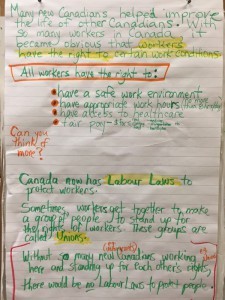 Many new Canadians, helped improve
the life of other Canadians. With
so many workers in Canada it
became obvious that workers
have the right to certain work conditions.
All workers have the right to:
• have a safe work environment
• have appropriate work hours
• have access to healthcare
• fair pay
Can you
think of
more?
Canada now has Labour Laws to
protect workers.
Sometimes workers get together to make
a group of people to stand up for
the rights of workers. These groups are
called Unions.
Without so many new Canadians working
here and standing up for each other's rights,
there would be no Labour Laws to protect people.